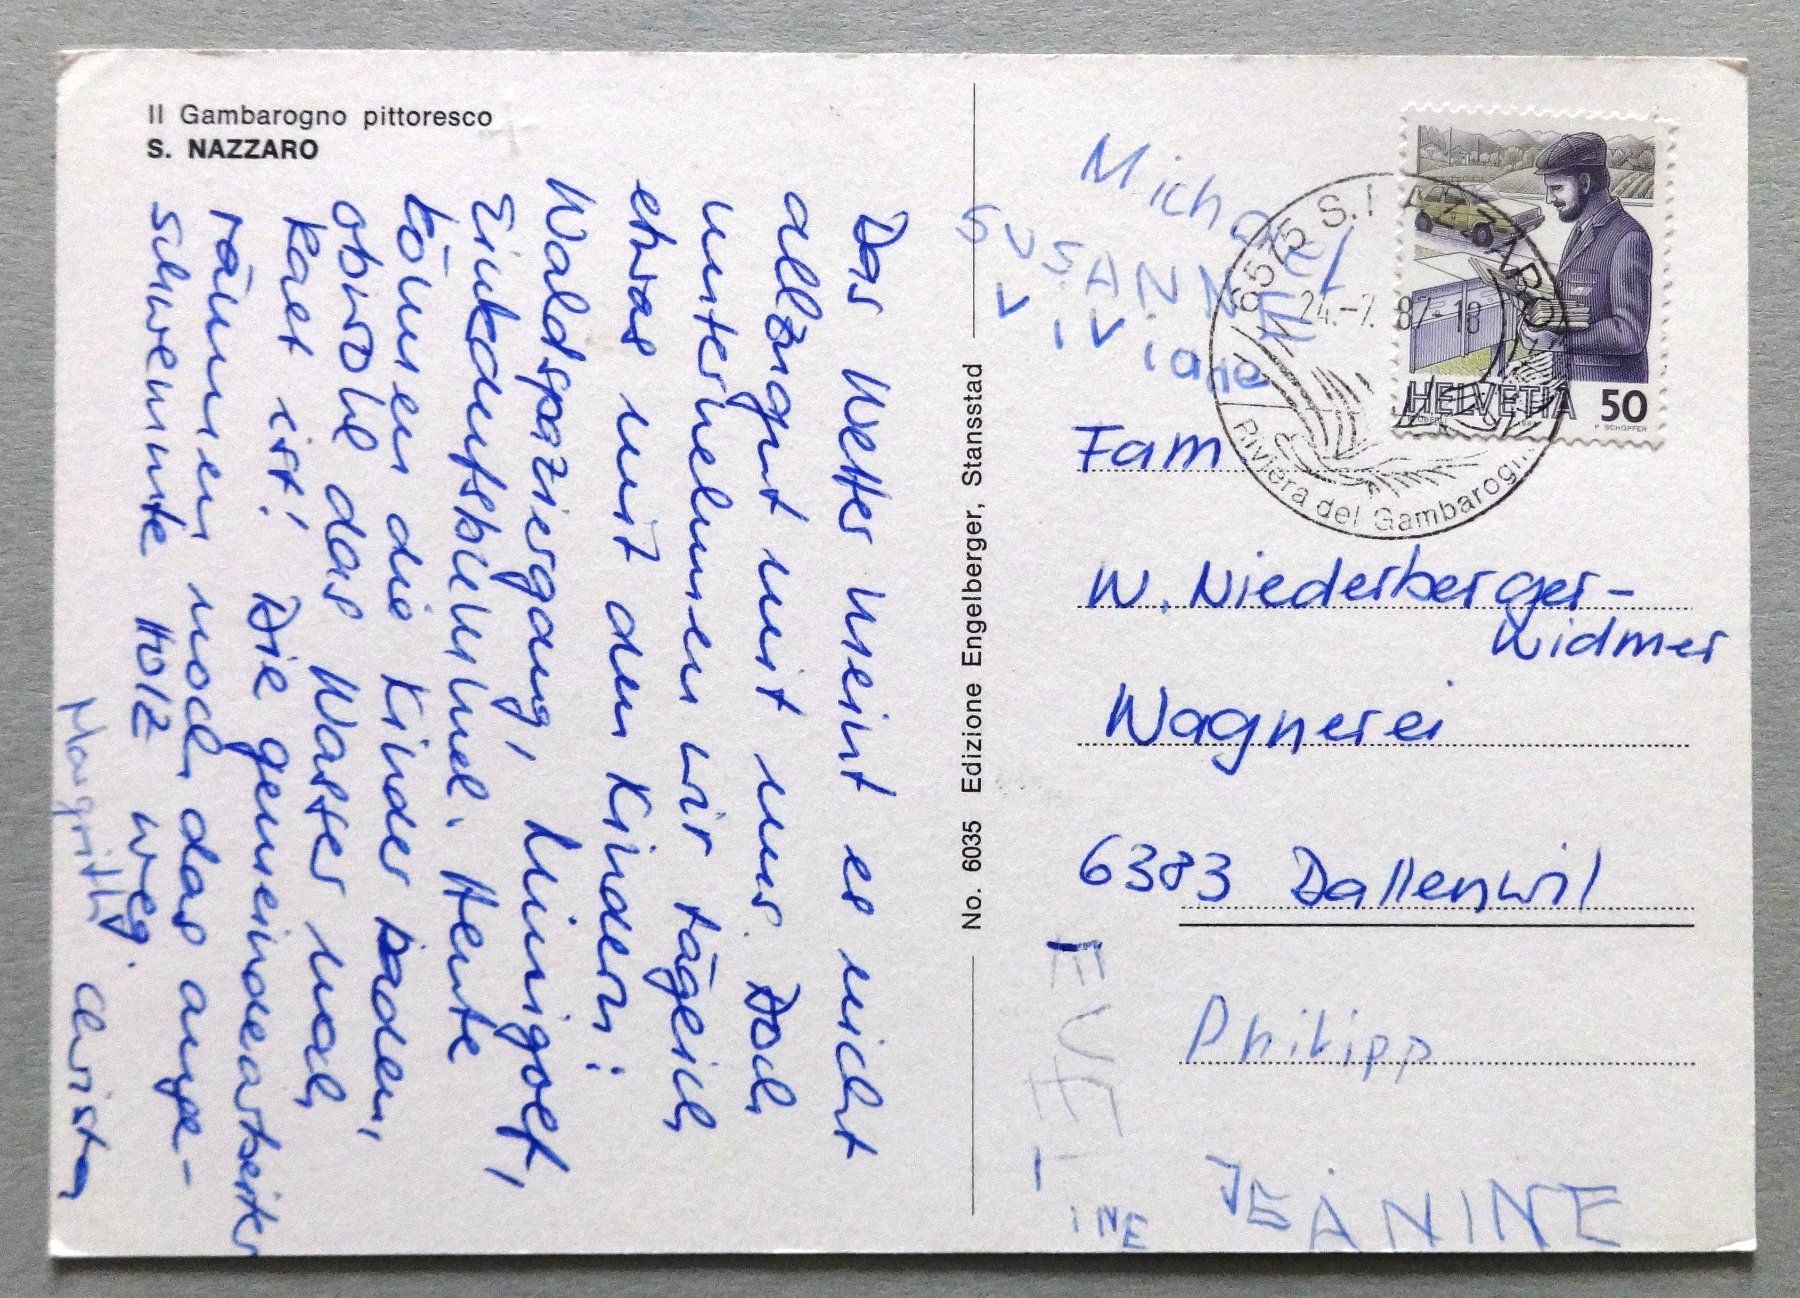 Il Gambarogno pittoresco
S. NAZZARO
Das Wetter meint es nicht
allzugut mit uns. Doch
unternehmen wir täglich
etwas mit den Kindern:
Waldspaziergang, Minigolf,
Einkaufsbummel. Heute
können die Kinder baden,
obwohl das Wasser noch
kalt ist! Die gemeindearbeiter
räumen noch das ange-
schwemmte Holz weg.
Margrith, Christa
No. 6035 Edizione Engelberger, Stansstad
Michael
SUSANNE
Viviane
6575 S. NAZZARO
24.-7. 87-18
Riviera del Gambarogno
HELVETIA 50
P. SCHOPFER
Fam.
W. Niederberger-
Widmer
Wagnerei
6383 Dallenwil
Philipp
EVELINE
JEANINE